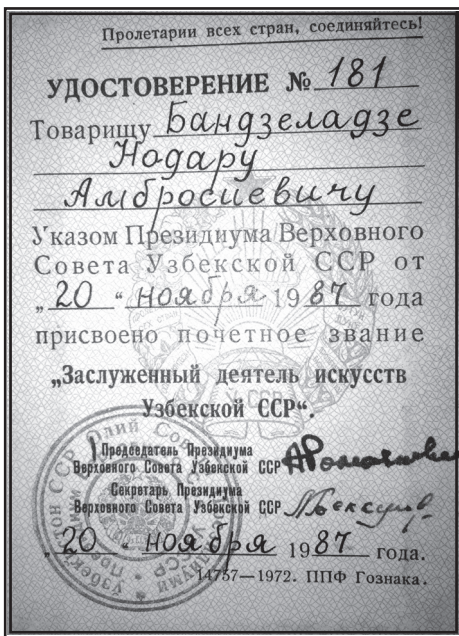 Пролетарии всех стран, соединяйтесь!
УДОСТОВЕРЕНИЕ № 181
Товарищу Бандзеладзе
Нодару
Амбросиевичу
Указом Президиума Верховного
Совета Узбекской ССР от
„20“ ноября 1987 года
присвоено почетное звание
„Заслуженный деятель искусств
Узбекской ССР“.
Председатель Президиума
Верховного Совета Узбекской ССР
Секретарь Президиума
Верховного Совета Узбекской ССР
„20“ ноября 1987 года.
14757—1972. ППФ Гознака.